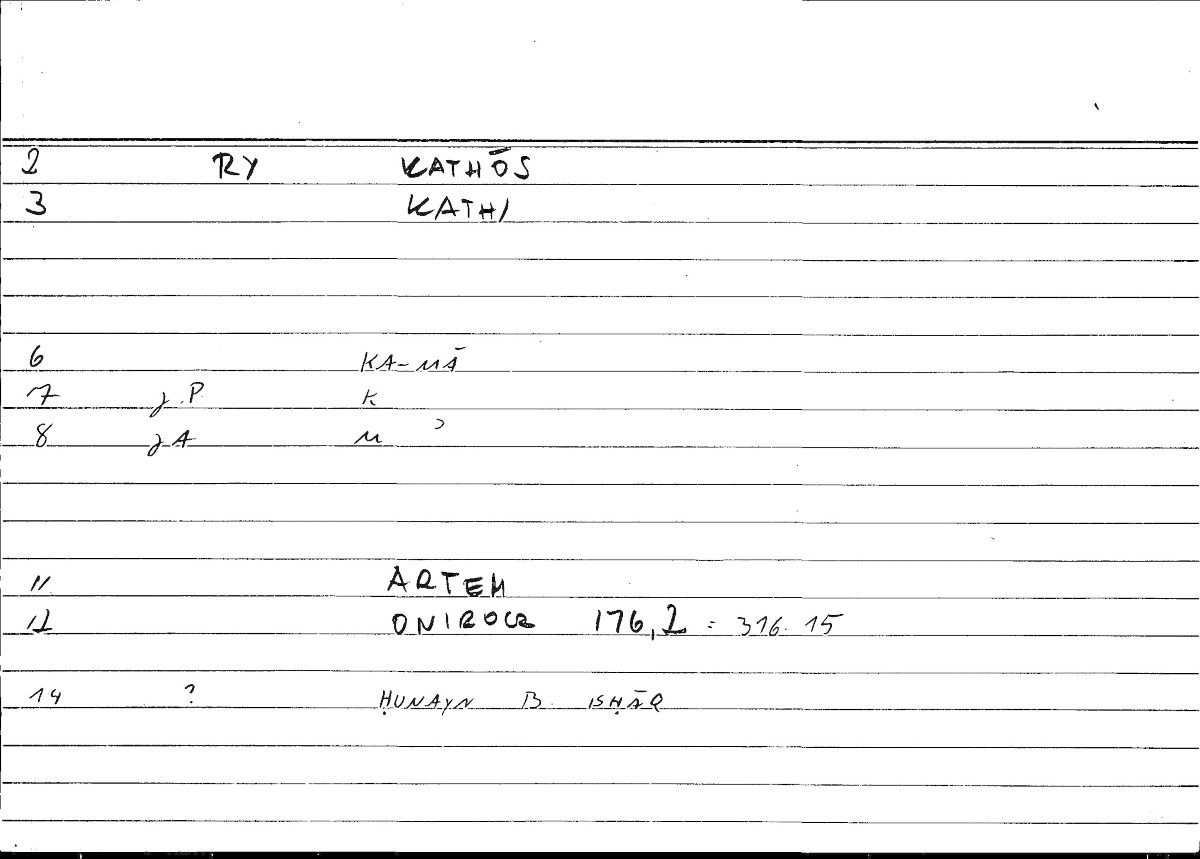 2 RY KATHŌS
3 KATHI
6 KA-MĀ
7 J.P. K
8 JA M ʾ
11 ARTEM
12 ONIROCR 176,2 = 316.15
14 ? ḤUNAYN B. ISḤĀQ